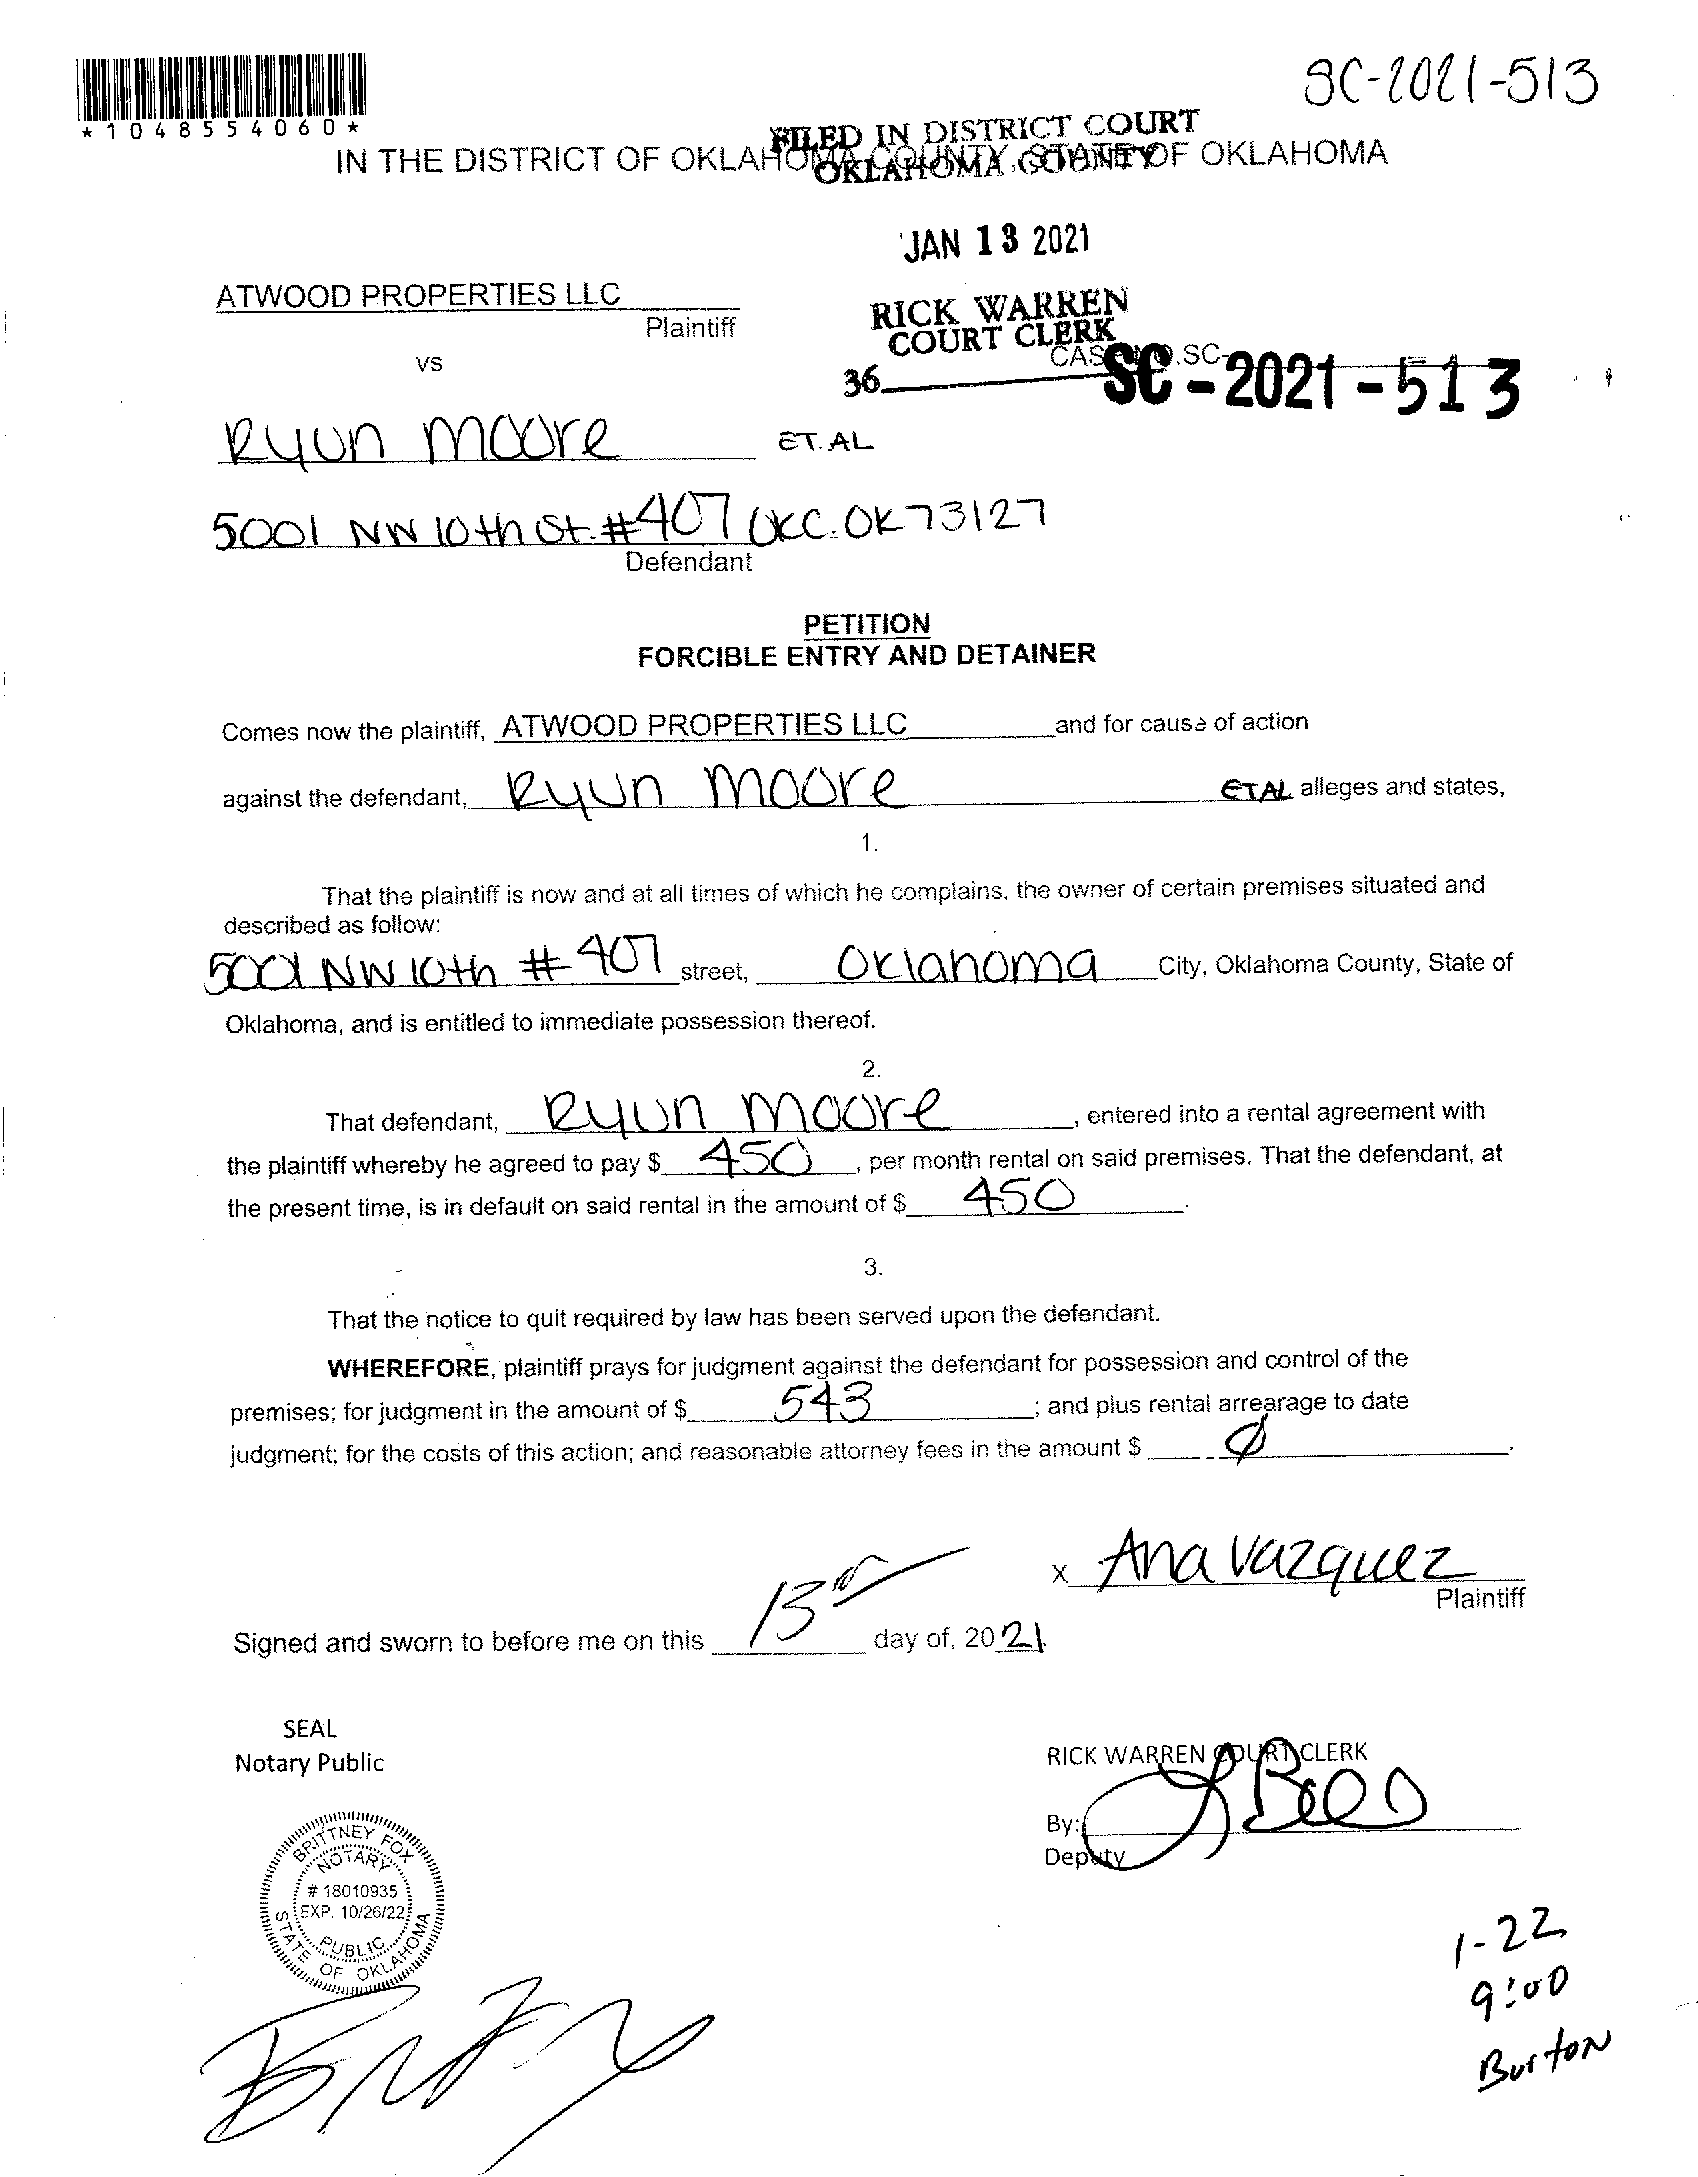 SC-2021-513
*1048554060*
FILED IN DISTRICT COURT
OKLAHOMA COUNTY
IN THE DISTRICT OF OKLAHOMA COUNTY, STATE OF OKLAHOMA
JAN 13 2021
ATWOOD PROPERTIES LLC
Plaintiff
RICK WARREN
COURT CLERK
vs
CASE NO. SC-
36
SC-2021-513
Ryun Moore ET. AL
5001 NW 10th St. #407 OKC. OK 73127
Defendant
PETITION
FORCIBLE ENTRY AND DETAINER
Comes now the plaintiff, ATWOOD PROPERTIES LLC and for cause of action
against the defendant, Ryun Moore ET AL alleges and states,
1.
That the plaintiff is now and at all times of which he complains, the owner of certain premises situated and
described as follow:
5001 NW 10th # 407 street, Oklahoma City, Oklahoma County, State of
Oklahoma, and is entitled to immediate possession thereof.
2.
That defendant, Ryun Moore, entered into a rental agreement with
the plaintiff whereby he agreed to pay $ 450, per month rental on said premises. That the defendant, at
the present time, is in default on said rental in the amount of $ 450.
3.
That the notice to quit required by law has been served upon the defendant.
WHEREFORE, plaintiff prays for judgment against the defendant for possession and control of the
premises; for judgment in the amount of $ 543; and plus rental arrearage to date
judgment; for the costs of this action; and reasonable attorney fees in the amount $ Ø.
x Ana Vazquez
Plaintiff
Signed and sworn to before me on this 13th day of, 2021.
SEAL
Notary Public
RICK WARREN COURT CLERK
By:
Deputy
BRITTNEY FOX
NOTARY
# 18010935
EXP. 10/26/22
PUBLIC
STATE OF OKLAHOMA
1-22
9:00
Burton